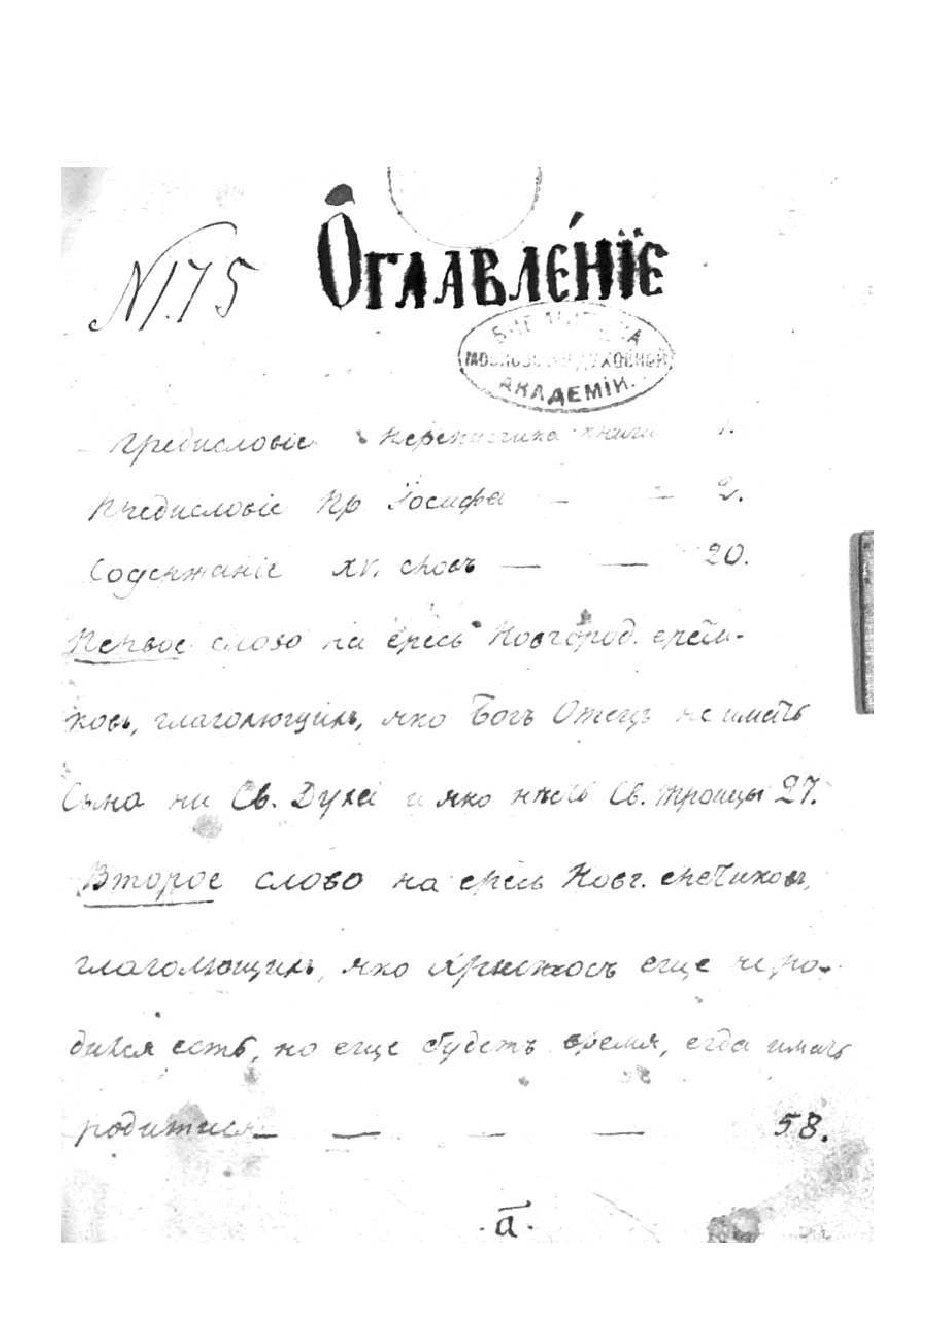 № 175
Оглавле́нїе
БИБЛИОТЕКА
МОСКОВСКОЙ ДУХОВНОЙ
АКАДЕМІИ.
Предисловіе переписчика книги 1.
Предисловіе Пр Іосифа — — 2.
Содержаніе XV. словъ — — 20.
Первое слово на ересь Новгород. ерети-
ковъ, глаголющихъ, яко Богъ Отецъ не иматъ
Сына ни Св. Духа и яко нѣсть Св. Троицы 27.
Второе слово на ересь Новг. еретиковъ,
глаголющихъ, яко Христосъ еще не ро-
дился есть, но еще будетъ время, егда имать
родитися — — — — 58.
·а·